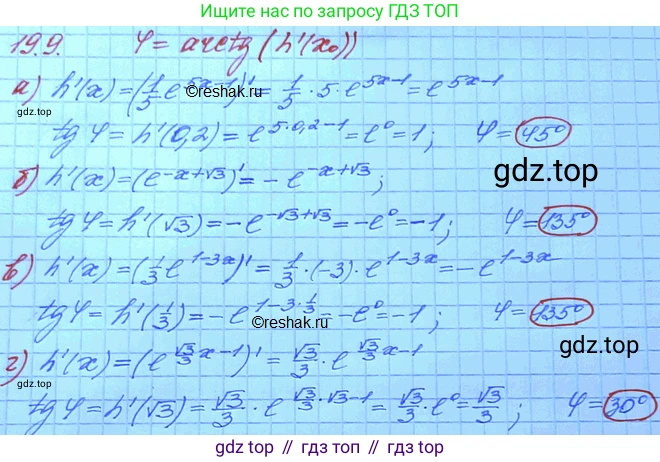 Ищите ответы по запросу ГДЗ ТОП
19.9. φ = arctg (h'(x₀))
а) h'(x) = (1/5 e^(5x-1))' = 1/5 · 5 · e^(5x-1) = e^(5x-1)
©reshak.ru
gdz.top
tg φ = h'(0,2) = e^(5·0,2-1) = e^0 = 1; φ = 45°
gdz.top
б) h'(x) = (e^(-x+√3))' = - e^(-x+√3);
tg φ = h'(√3) = -e^(-√3+√3) = -e^0 = -1; φ = 135°
в) h'(x) = (1/3 e^(1-3x))' = 1/3 · (-3) · e^(1-3x) = -e^(1-3x)
tg φ = h'(1/3) = -e^(1-3·1/3) = -e^0 = -1; φ = 135°
©reshak.ru
gdz.top
г) h'(x) = (e^(√3/3 x-1))' = √3/3 · e^(√3/3 x-1)
gdz.top
tg φ = h'(√3) = √3/3 · e^(√3/3 · √3-1) = √3/3 · e^0 = √3/3; φ = 30°
gdz.top // гдз.топ // гдз топ // gdz top